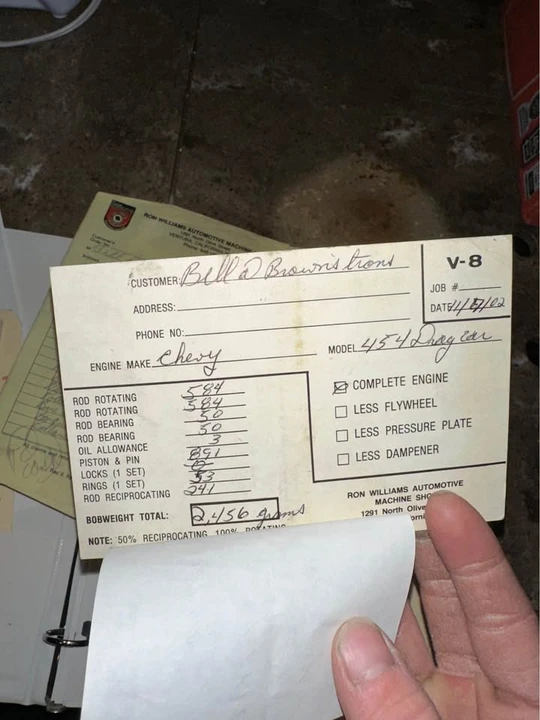 RON WILLIAMS AUTOMOTIVE MACHINE
VENTURA, CALIFORNIA
V-8
CUSTOMER: Bill D Brownstrons
JOB #
ADDRESS:
DATE 11/ /02
PHONE NO:
ENGINE MAKE Chevy
MODEL 454 Drag car
ROD ROTATING 584
ROD ROTATING 584
ROD BEARING 50
ROD BEARING 50
OIL ALLOWANCE 3
PISTON & PIN 891
LOCKS (1 SET) 0
RINGS (1 SET) 53
ROD RECIPROCATING 241
BOBWEIGHT TOTAL: 2,456 grams
NOTE: 50% RECIPROCATING 100% ROTATING
COMPLETE ENGINE
LESS FLYWHEEL
LESS PRESSURE PLATE
LESS DAMPENER
RON WILLIAMS AUTOMOTIVE
MACHINE SHO
1291 North Olive